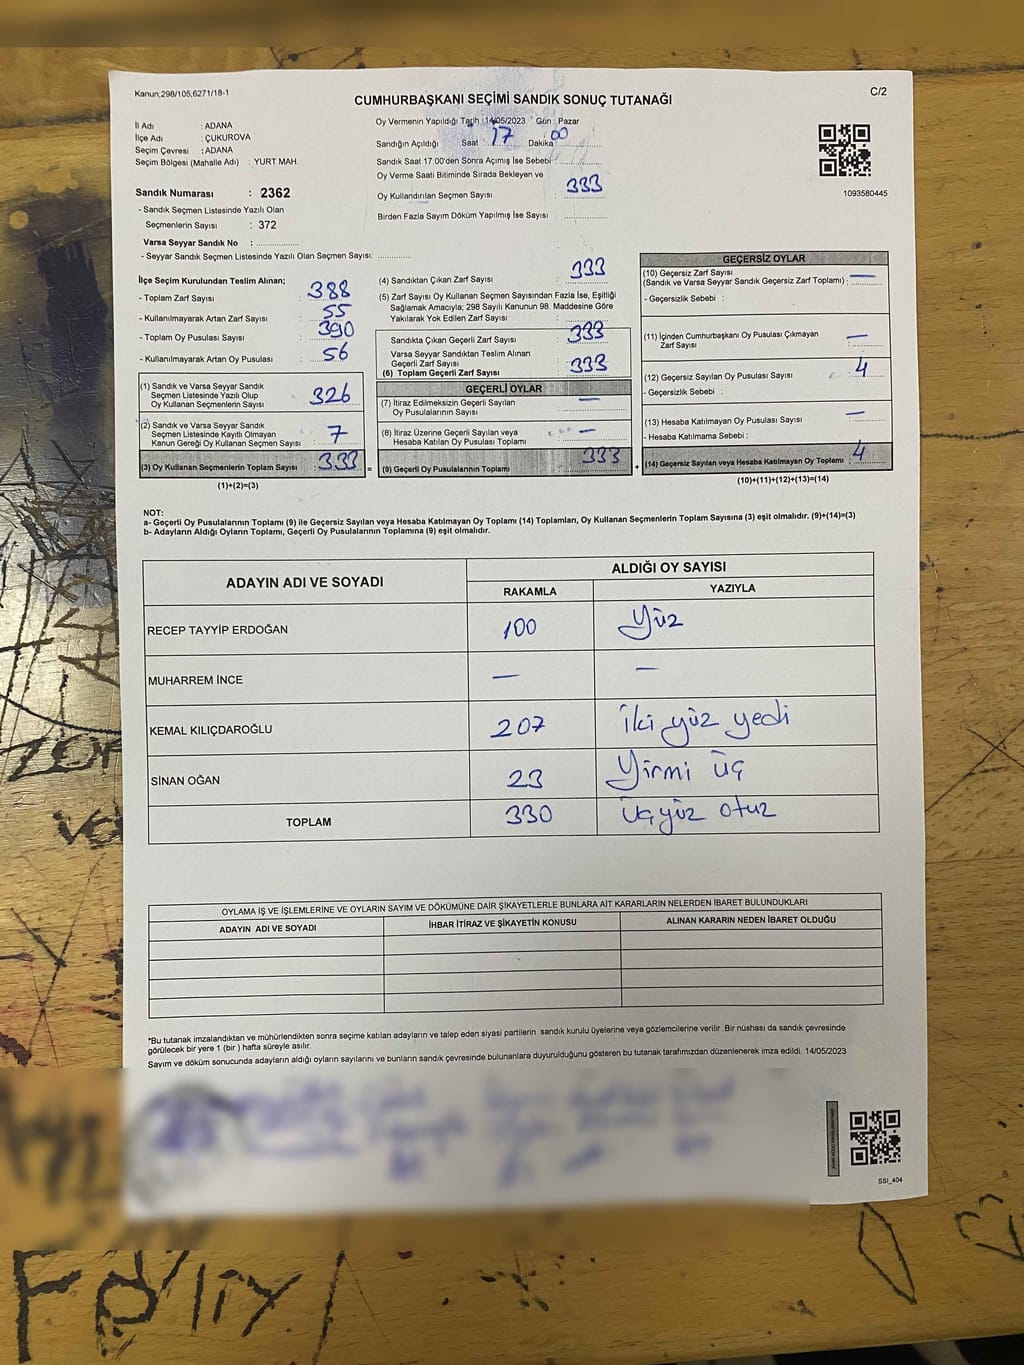 Kanun;298/105,6271/18-1
C/2
CUMHURBAŞKANI SEÇİMİ SANDIK SONUÇ TUTANAĞI
İl Adı : ADANA
İlçe Adı : ÇUKUROVA
Seçim Çevresi : ADANA
Seçim Bölgesi (Mahalle Adı) : YURT MAH.
Sandık Numarası : 2362
- Sandık Seçmen Listesinde Yazılı Olan
Seçmenlerin Sayısı : 372
Varsa Seyyar Sandık No : ..............
- Seyyar Sandık Seçmen Listesinde Yazılı Olan Seçmen Sayısı: ..............
Oy Vermenin Yapıldığı Tarih :14/05/2023 Gün : Pazar
Sandığın Açıldığı Saat : 17 Dakika : 00
Sandık Saat 17:00'den Sonra Açımış İse Sebebi : ..............
Oy Verme Saati Bitiminde Sırada Bekleyen ve
Oy Kullandırılan Seçmen Sayısı : 333
Birden Fazla Sayım Döküm Yapılmış İse Sayısı : ..............
1093580445
İlçe Seçim Kurulundan Teslim Alınan;
- Toplam Zarf Sayısı : 388
- Kullanılmayarak Artan Zarf Sayısı : 55
- Toplam Oy Pusulası Sayısı : 390
- Kullanılmayarak Artan Oy Pusulası : 56
(1) Sandık ve Varsa Seyyar Sandık
Seçmen Listesinde Yazılı Olup
Oy Kullanan Seçmenlerin Sayısı : 326
(2) Sandık ve Varsa Seyyar Sandık
Seçmen Listesinde Kayıtlı Olmayan
Kanun Gereği Oy Kullanan Seçmen Sayısı : 7
(3) Oy Kullanan Seçmenlerin Toplam Sayısı : 333 =
(1)+(2)=(3)
(4) Sandıktan Çıkan Zarf Sayısı : 333
(5) Zarf Sayısı Oy Kullanan Seçmen Sayısından Fazla İse, Eşitliği
Sağlamak Amacıyla; 298 Sayılı Kanunun 98. Maddesine Göre
Yakılarak Yok Edilen Zarf Sayısı : ..............
Sandıkta Çıkan Geçerli Zarf Sayısı : 333
Varsa Seyyar Sandıktan Teslim Alınan
Geçerli Zarf Sayısı
(6) Toplam Geçerli Zarf Sayısı : 333
GEÇERLİ OYLAR
(7) İtiraz Edilmeksizin Geçerli Sayılan
Oy Pusulalarının Sayısı : —
(8) İtiraz Üzerine Geçerli Sayılan veya
Hesaba Katılan Oy Pusulası Toplamı : —
(9) Geçerli Oy Pusulalarının Toplamı : 333 +
GEÇERSİZ OYLAR
(10) Geçersiz Zarf Sayısı
(Sandık ve Varsa Seyyar Sandık Geçersiz Zarf Toplamı) : —
- Geçersizlik Sebebi :
(11) İçinden Cumhurbaşkanı Oy Pusulası Çıkmayan
Zarf Sayısı : —
(12) Geçersiz Sayılan Oy Pusulası Sayısı : 4
- Geçersizlik Sebebi :
(13) Hesaba Katılmayan Oy Pusulası Sayısı : —
- Hesaba Katılmama Sebebi :
(14) Geçersiz Sayılan veya Hesaba Katılmayan Oy Toplamı : 4
(10)+(11)+(12)+(13)=(14)
NOT:
a- Geçerli Oy Pusulalarının Toplamı (9) ile Geçersiz Sayılan veya Hesaba Katılmayan Oy Toplamı (14) Toplamları, Oy Kullanan Seçmenlerin Toplam Sayısına (3) eşit olmalıdır. (9)+(14)=(3)
b- Adayların Aldığı Oyların Toplamı, Geçerli Oy Pusulalarının Toplamına (9) eşit olmalıdır.
ADAYIN ADI VE SOYADI ALDIĞI OY SAYISI
RAKAMLA YAZIYLA
RECEP TAYYİP ERDOĞAN 100 Yüz
MUHARREM İNCE — —
KEMAL KILIÇDAROĞLU 207 iki yüz yedi
SİNAN OĞAN 23 Yirmi üç
TOPLAM 330 üçyüz otuz
OYLAMA İŞ VE İŞLEMLERİNE VE OYLARIN SAYIM VE DÖKÜMÜNE DAİR ŞİKAYETLERLE BUNLARA AİT KARARLARIN NELERDEN İBARET BULUNDUKLARI
ADAYIN ADI VE SOYADI İHBAR İTİRAZ VE ŞİKAYETİN KONUSU ALINAN KARARIN NEDEN İBARET OLDUĞU
*Bu tutanak imzalandıktan ve mühürlendikten sonra seçime katılan adayların ve talep eden siyasi partilerin sandık kurulu üyelerine veya gözlemcilerine verilir .Bir nüshası da sandık çevresinde
görülecek bir yere 1 (bir ) hafta süreyle asılır.
Sayım ve döküm sonucunda adayların aldığı oyların sayılarını ve bunların sandık çevresinde bulunanlara duyurulduğunu gösteren bu tutanak tarafımızdan düzenlenerek imza edildi. 14/05/2023
SSI_404